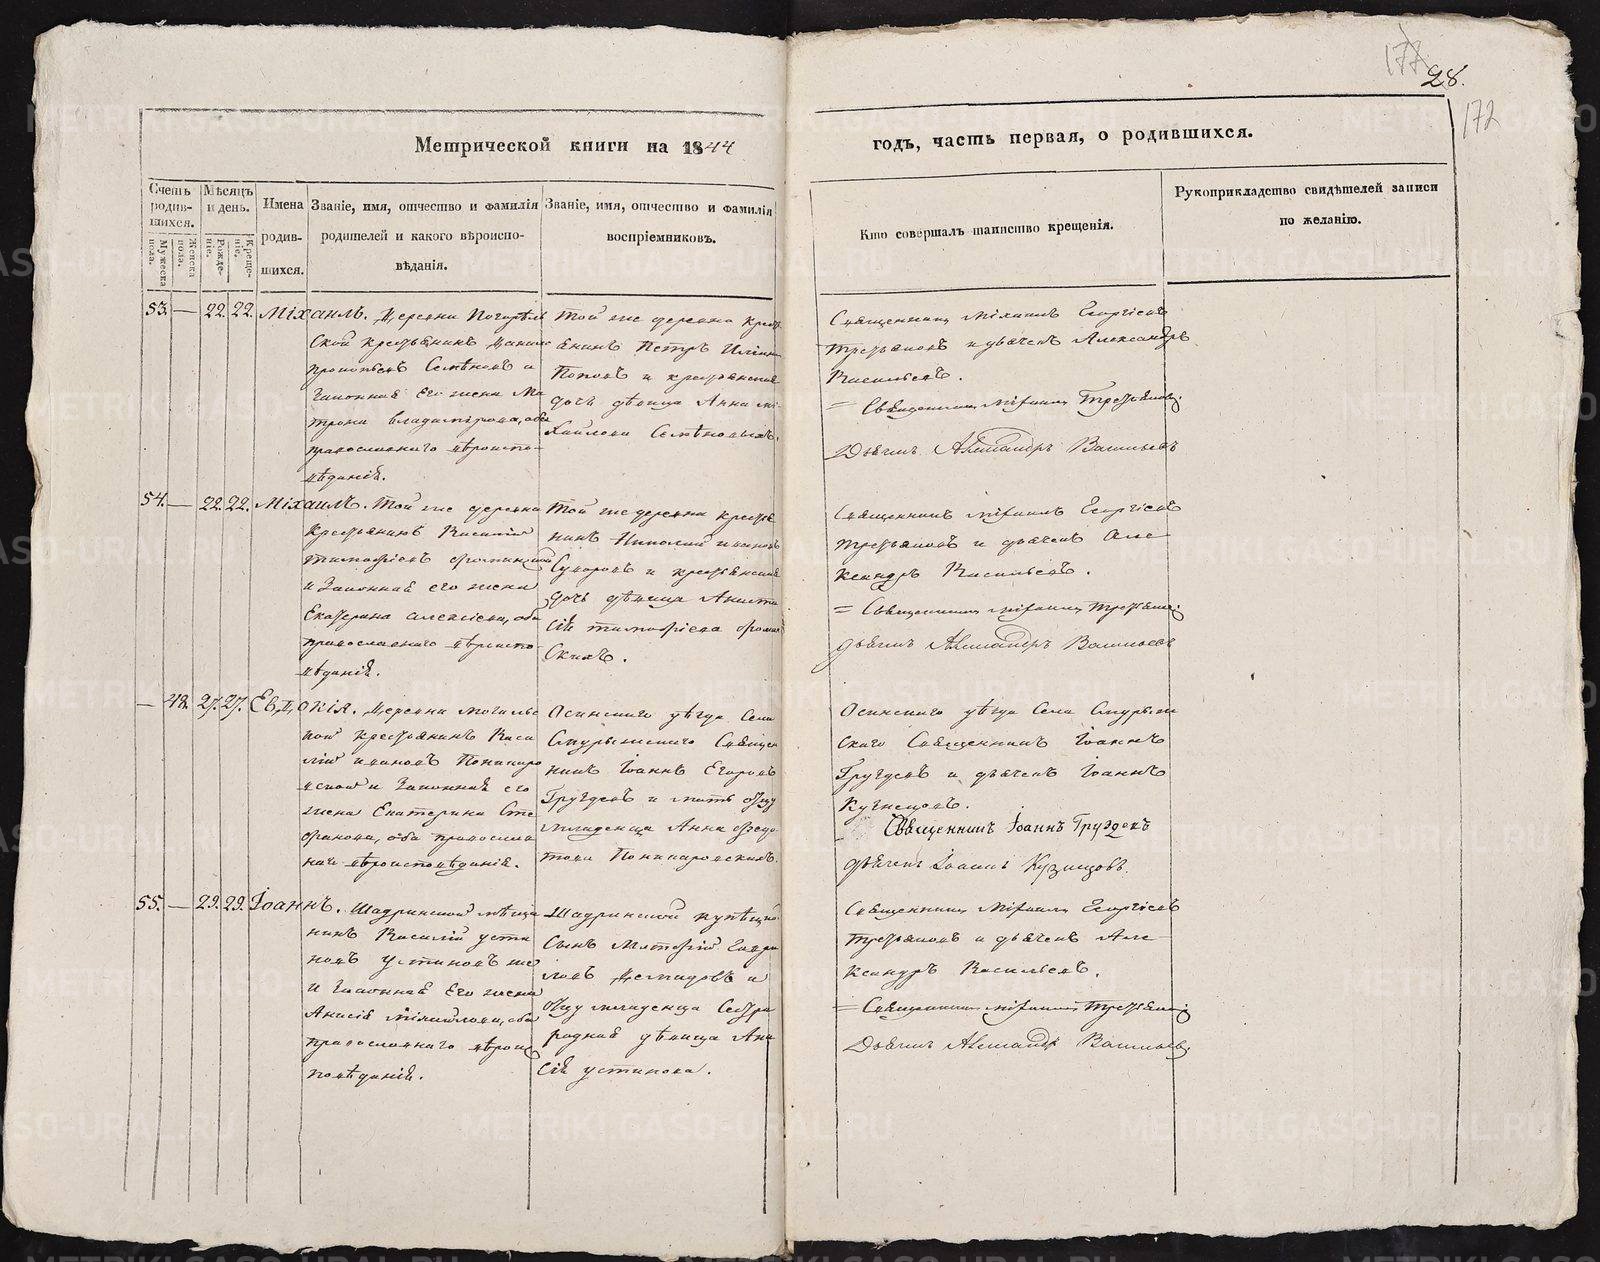 177
28.
172
Метрической книги на 1844
годъ, часть первая, о родившихся.
Счетъ родив-шихся.
Мужеска пола.
Женска пола.
Мѣсяцъ и день.
Рожде-ніе.
Креще-ніе.
Имена родив-шихся.
Званіе, имя, отчество и фамилія
родителей и какого вѣроиспо-
вѣданія.
Званіе, имя, отчество и фамилія
воспріемниковъ.
Кто совершалъ таинство крещенія.
Рукоприкладство свидѣтелей записи
по желанію.
53. — 22. 22. Міхаилъ. Деревни
ской крестьянинъ
Семѣновъ и
Законная Его жена Ма
трона Владимірова, оба
православнаго вѣроиспо-
вѣданія.
Той же деревни крест
янинъ Петръ Ильинъ
Поповъ и крестьянская
дочь дѣвица Анна Ми-
хайлова Семѣновыхъ.
Священникъ Михаилъ Георгіевъ
Третьяковъ и дьячекъ Александръ
Васильевъ.
= Священникъ Михаилъ Третьяковъ.
Дьячекъ Александръ Васильевъ
54. — 22. 22. Міхаилъ. Той же деревни
Крестьянинъ Василій
Тимофѣевъ
и Законная его жена
Екатерина Алексіева, оба
православнаго вѣроиспо-
вѣданія.
Той же деревни крестья
нинъ Николай Ивановъ
Суворовъ и крестьянская
дочь дѣвица Анаста
сія Тимофіева
скихъ.
Священникъ Михаилъ Георгіевъ
Третьяковъ и дьячекъ Але
ксандръ Васильевъ.
= Священникъ Михаилъ Третьяковъ
дьячекъ Александръ Васильевъ
— 48. 27. 27. Евдокія. Деревни
крестьянинъ Васи
лій Ивановъ Понкаро
вской и Законная его
жена Екатерина Сте
фанова, оба православ
наго вѣроисповѣданія.
Осинскаго уѣзда Села
Священ
никъ Іоаннъ Егоровъ
Груздевъ и мать отцу
младенца Анна Ѳедо
това
Осинскаго уѣзда Села
скаго Священникъ Іоаннъ
Груздевъ и дьячекъ Іоаннъ
Кузнецовъ.
Священникъ Іоаннъ Груздевъ
дьячекъ Іоаннъ Кузнецовъ.
55. — 29. 29. Іоаннъ. Шадринской мѣща
нинъ Василій Усти
новъ Устиновъ же
и Законная Его жена
Анисія Михайлова, оба
православнаго вѣроис
повѣданія.
Шадринской купецкій
сынъ Гаври
ловъ Демидовъ и
отцу младенца Сестра
родная дѣвица Ани
сія Устинова.
Священникъ Михаилъ Георгіевъ
Третьяковъ и дьячекъ Але
ксандръ Васильевъ.
= Священникъ Михаилъ Третьяковъ
Дьячекъ Александръ Васильевъ